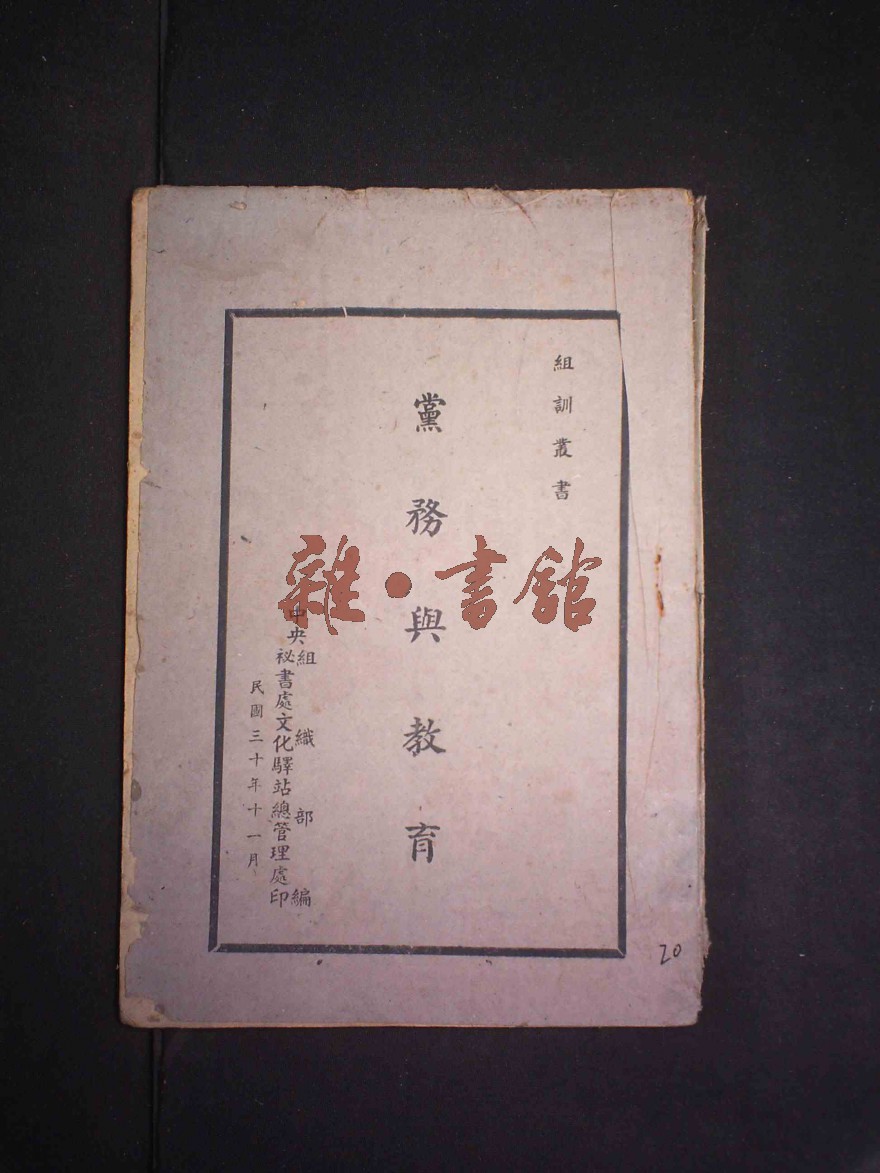 組訓叢書
黨務與教育
中央
組織部編
祕書處文化驛站總管理處印
民國三十年十一月
雜·書館
20